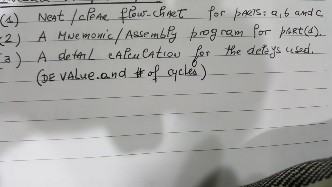 (1) Neat/clear flow-chart for parts: a, b and c
(2) A Mnemonic/Assembly program for part(1).
(3) A detail calculation for the delays used.
(DE value. and # of cycles)